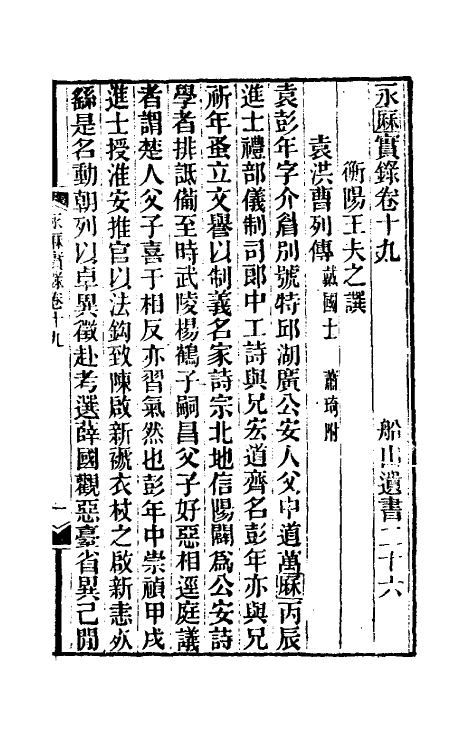 永厤實錄卷十九 船山遺書二十六
衡陽王夫之譔
袁洪曹列傳 戴國士 蕭琦附
袁彭年字介眉別號特邱湖廣公安人父中道萬厤丙辰
進士禮部儀制司郎中工詩與兄宏道齊名彭年亦與兄
祈年蚤立文譽以制義名家詩宗北地信陽闢爲公安詩
學者排詆備至時武陵楊鶴子嗣昌父子好惡相逕庭議
者謂楚人父子喜于相反亦習氣然也彭年中崇禎甲戌
進士授淮安推官以法鈎致陳啟新褫衣杖之啟新恚
繇是名動朝列以卓異徵赴考選薛國觀惡臺省異己閒
永厤實錄卷十九 一